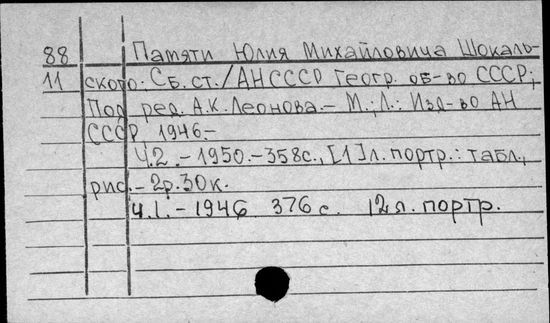 88 Памяти Юлия Михайловича Шокаль-
11 ского: Сб. ст./АНСССР Геогр. об-во СССР;
Под ред. А.К. Леонова. – М.; Л.: Изд-во АН
СССР 1946. –
Ч.2. – 1950. – 358с., [1]л. портр.: табл.,
рис. – 2р.30к.
Ч.1. – 1946 376 с. 12л. портр.